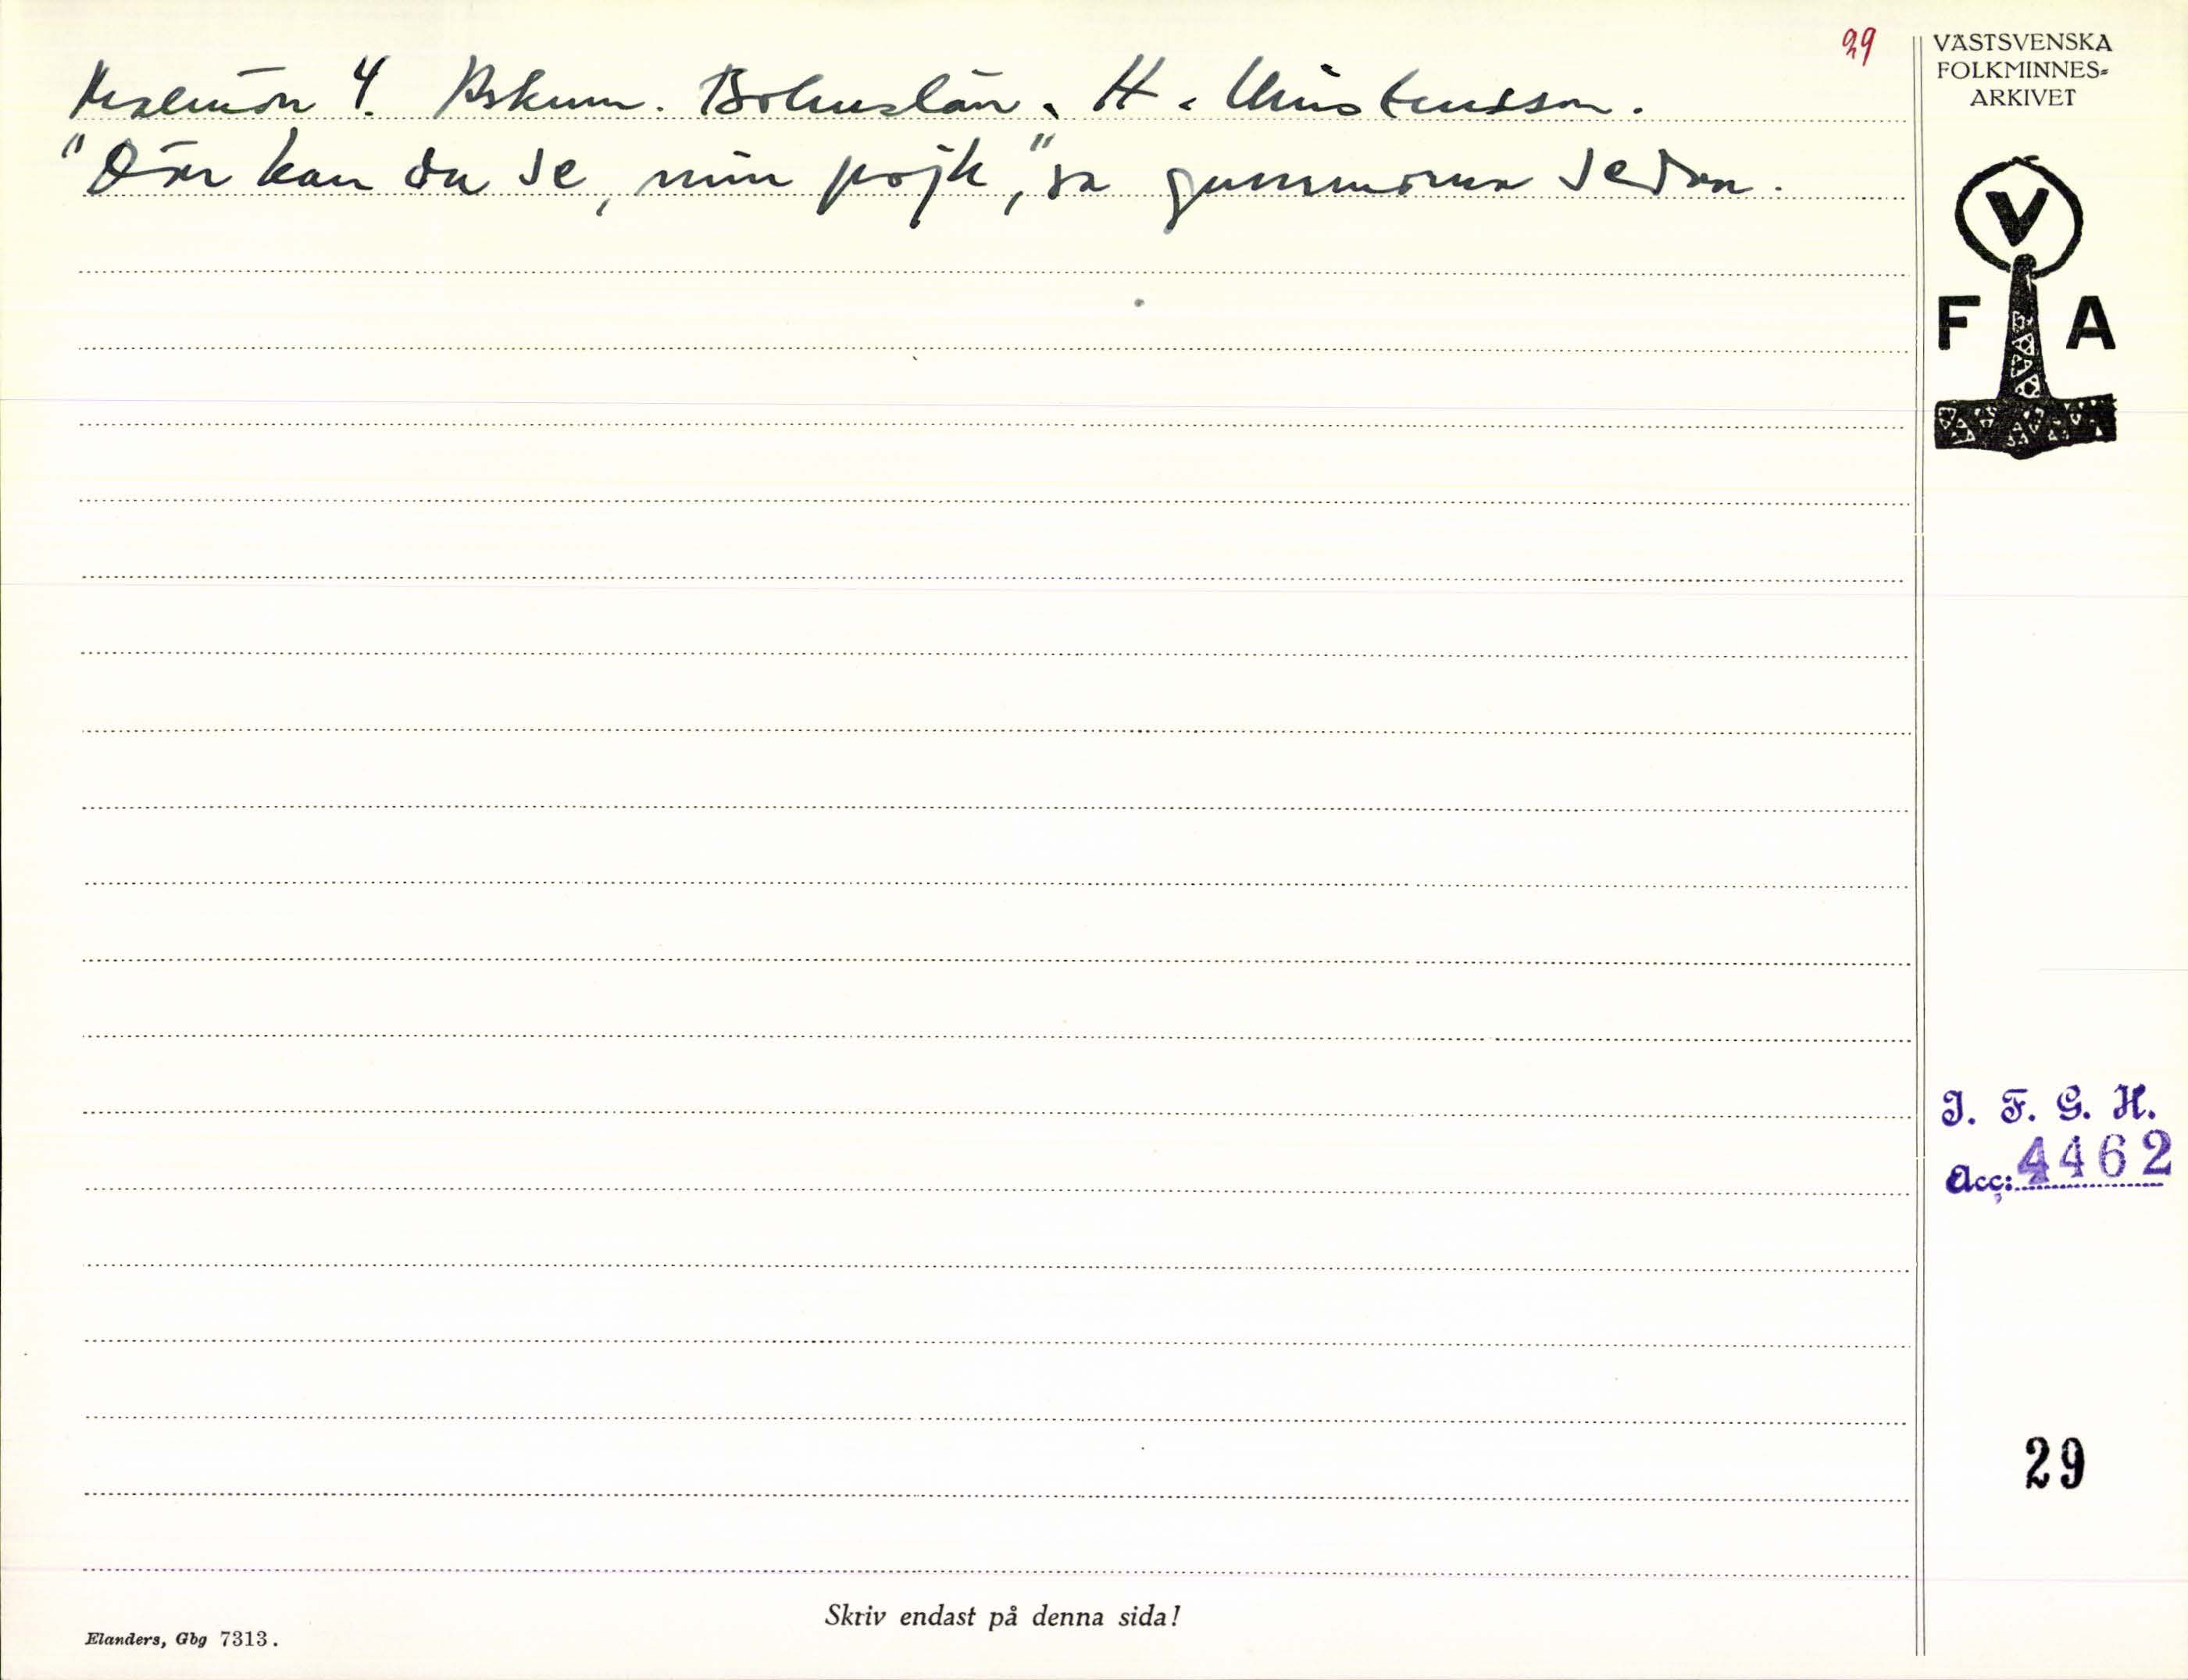 29
Malmön 4. Askum. Bohuslän. H. Christensson.
"Där kan du se, min pojk," sa gummorna sedan.
VÄSTSVENSKA
FOLKMINNES-
ARKIVET
V
F A
I. F. G. H.
Acc: 4462
29
Skriv endast på denna sida!
Elanders, Gbg 7313.